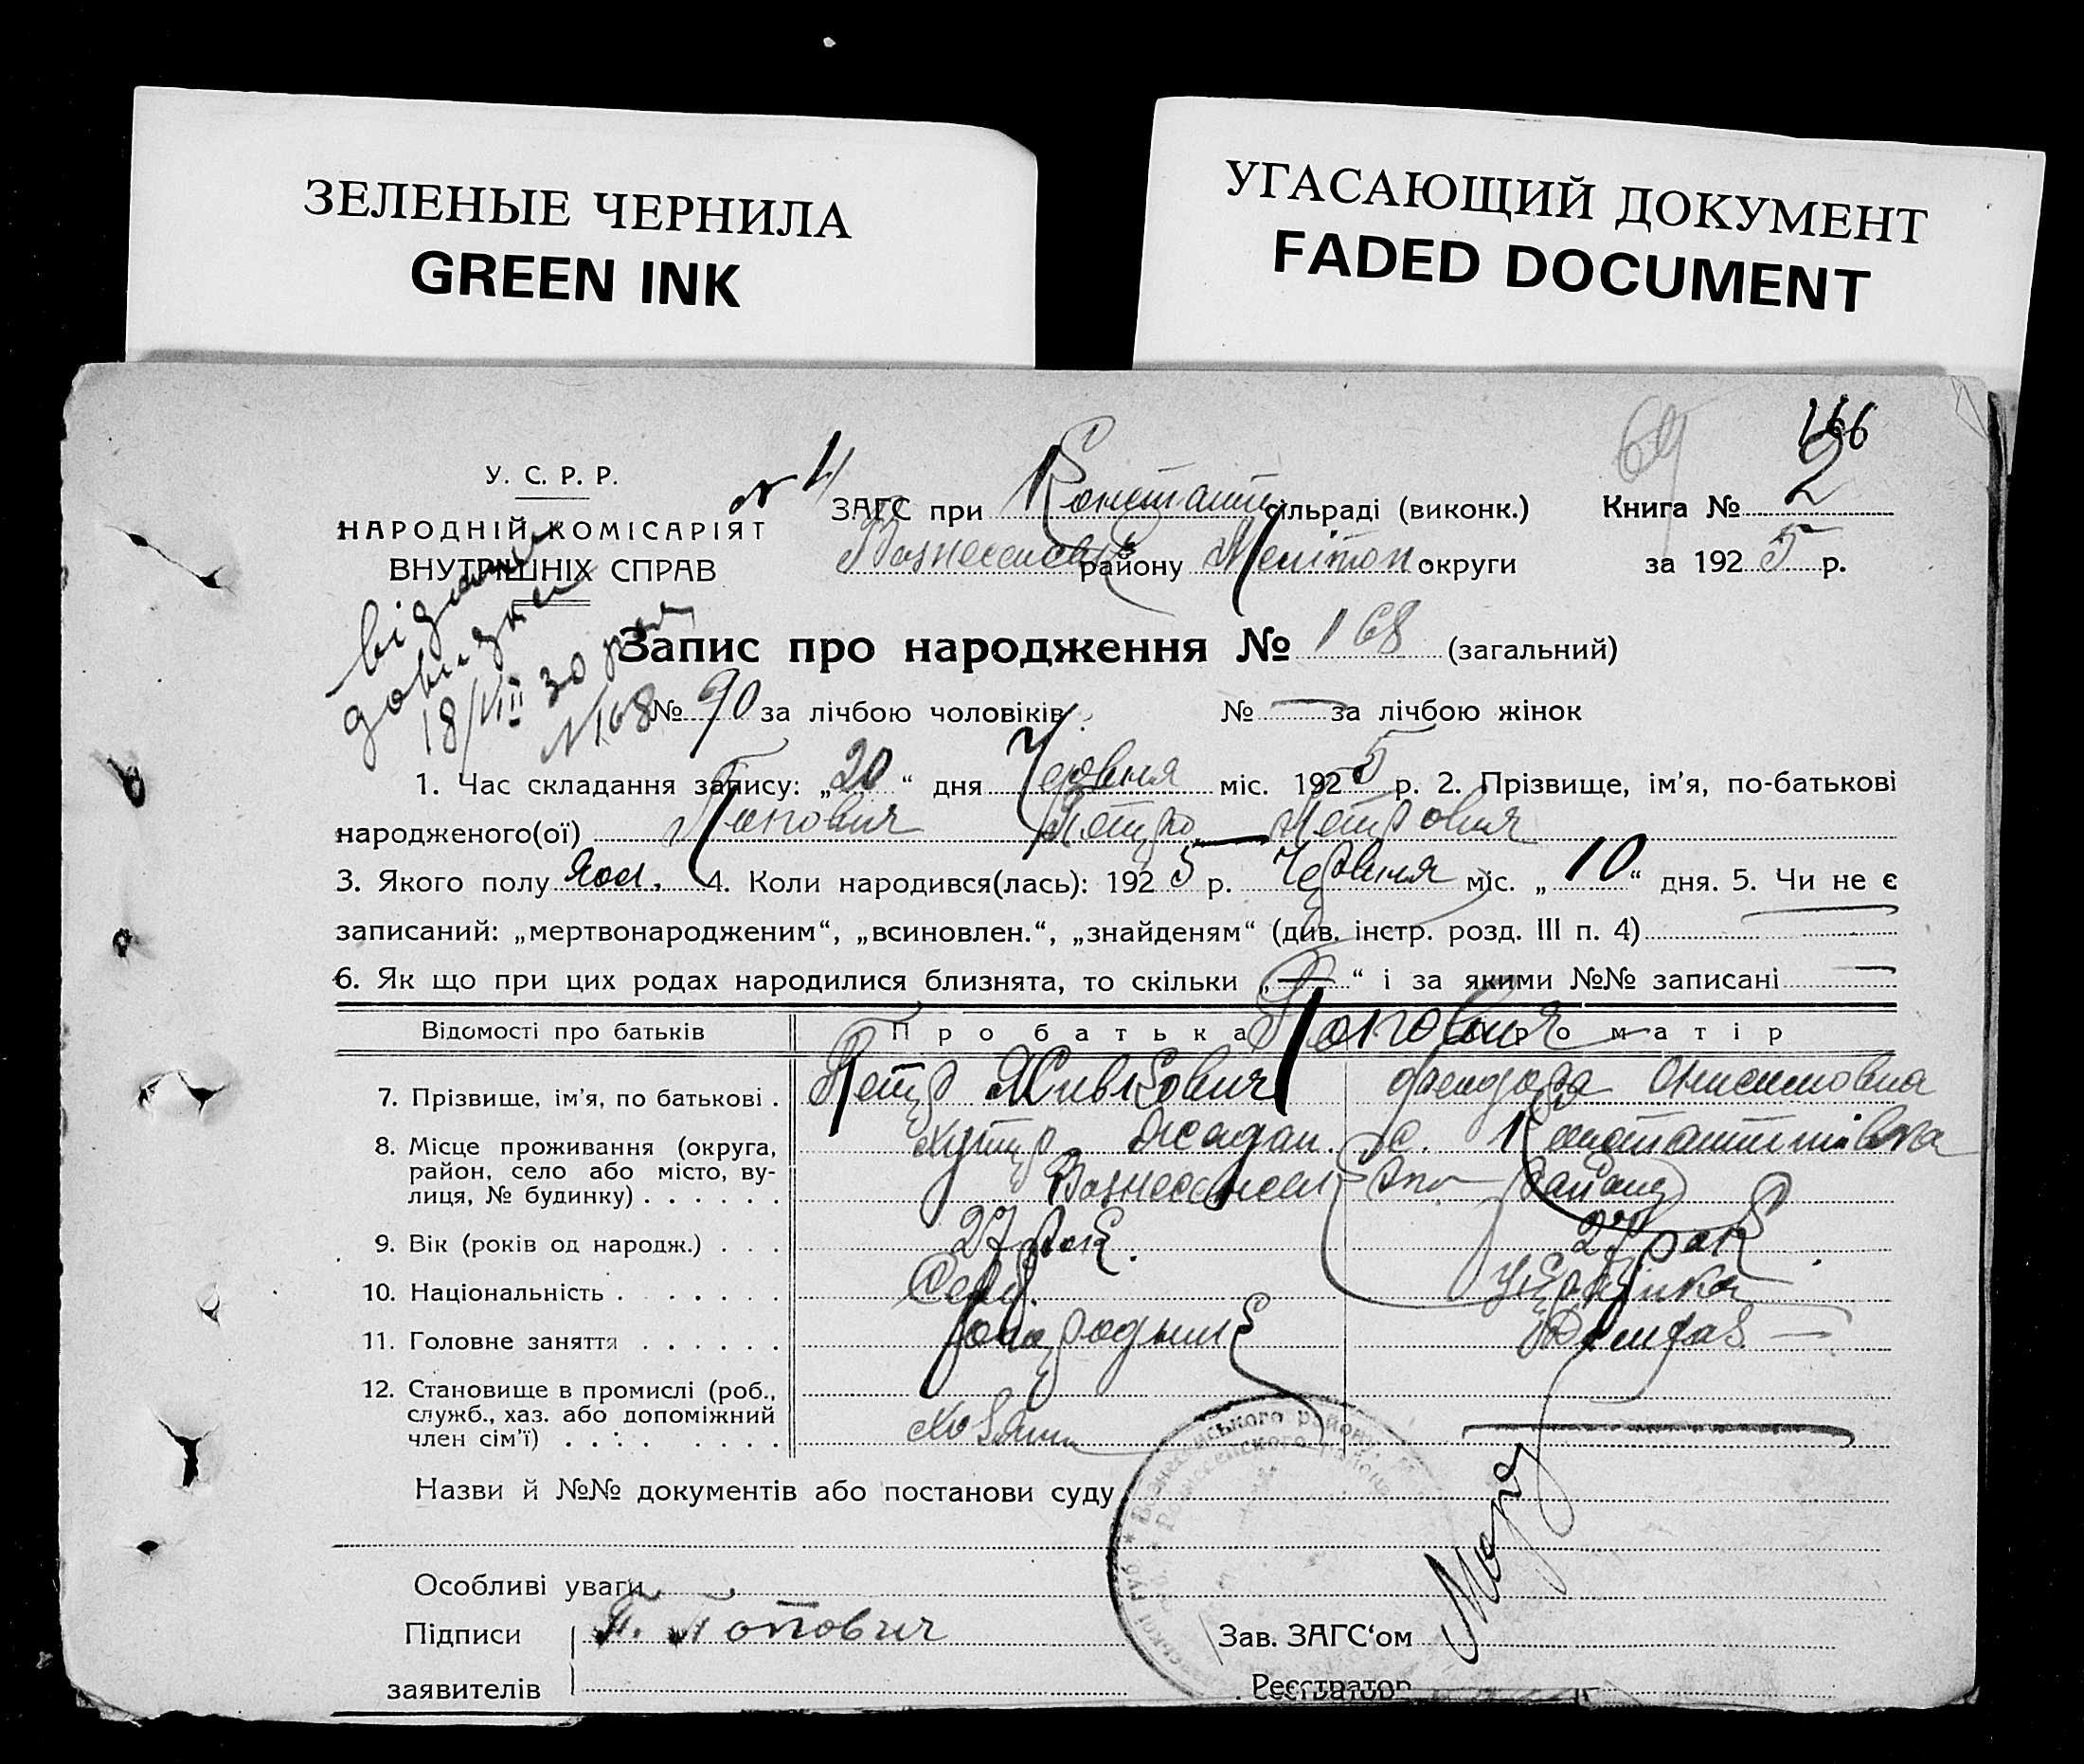 ЗЕЛЕНЫЕ ЧЕРНИЛА
GREEN INK
УГАСАЮЩИЙ ДОКУМЕНТ
FADED DOCUMENT
166
69
У. С. Р. Р.
НАРОДНІЙ КОМІСАРІЯТ
ВНУТРІШНІХ СПРАВ
№ 4
ЗАГС при Констант сільраді (виконк.) Книга № 2
району Мелітоп. округи за 1925 р.
18/VIII 30
№ 168
Запис про народження № 168 (загальний)
№ 90 за лічбою чоловіків. № — за лічбою жінок
1. Час складання запису: „20“ дня Червня міс. 1925 р. 2. Прізвище, ім’я, по-батькові
народженого(ої) Попович Петро Петрович
3. Якого полу 4. Коли народився(лась): 1925 р. Червня міс. „10“ дня. 5. Чи не є
записаний: „мертвонародженим“, „всиновлен.“, „знайденям“ (див. інстр. розд. III п. 4) —
6. Як що при цих родах народилися близнята, то скільки „—“ і за якими №№ записані —
Відомості про батьків Про батька Попович Про матір
7. Прізвище, ім’я, по батькові . Петр Живкович Феодора Онисимовна
8. Місце проживання (округа, хутір с. Константинівка
район, село або місто, ву-
лиця, № будинку) . . . . . . району
9. Вік (років од народж.) . . . 27 рок. 27 рок.
10. Національність . . . . . . Серб. Українка
11. Головне заняття . . . . . .
12. Становище в промислі (роб.,
служб., хаз. або допоміжний
член сім’ї) . . . . . . . Хозяин —
Назви й №№ документів або постанови суду
Особливі уваги
Підписи П. Попович Зав. ЗАГС‘ом
заявителів Реєстратор